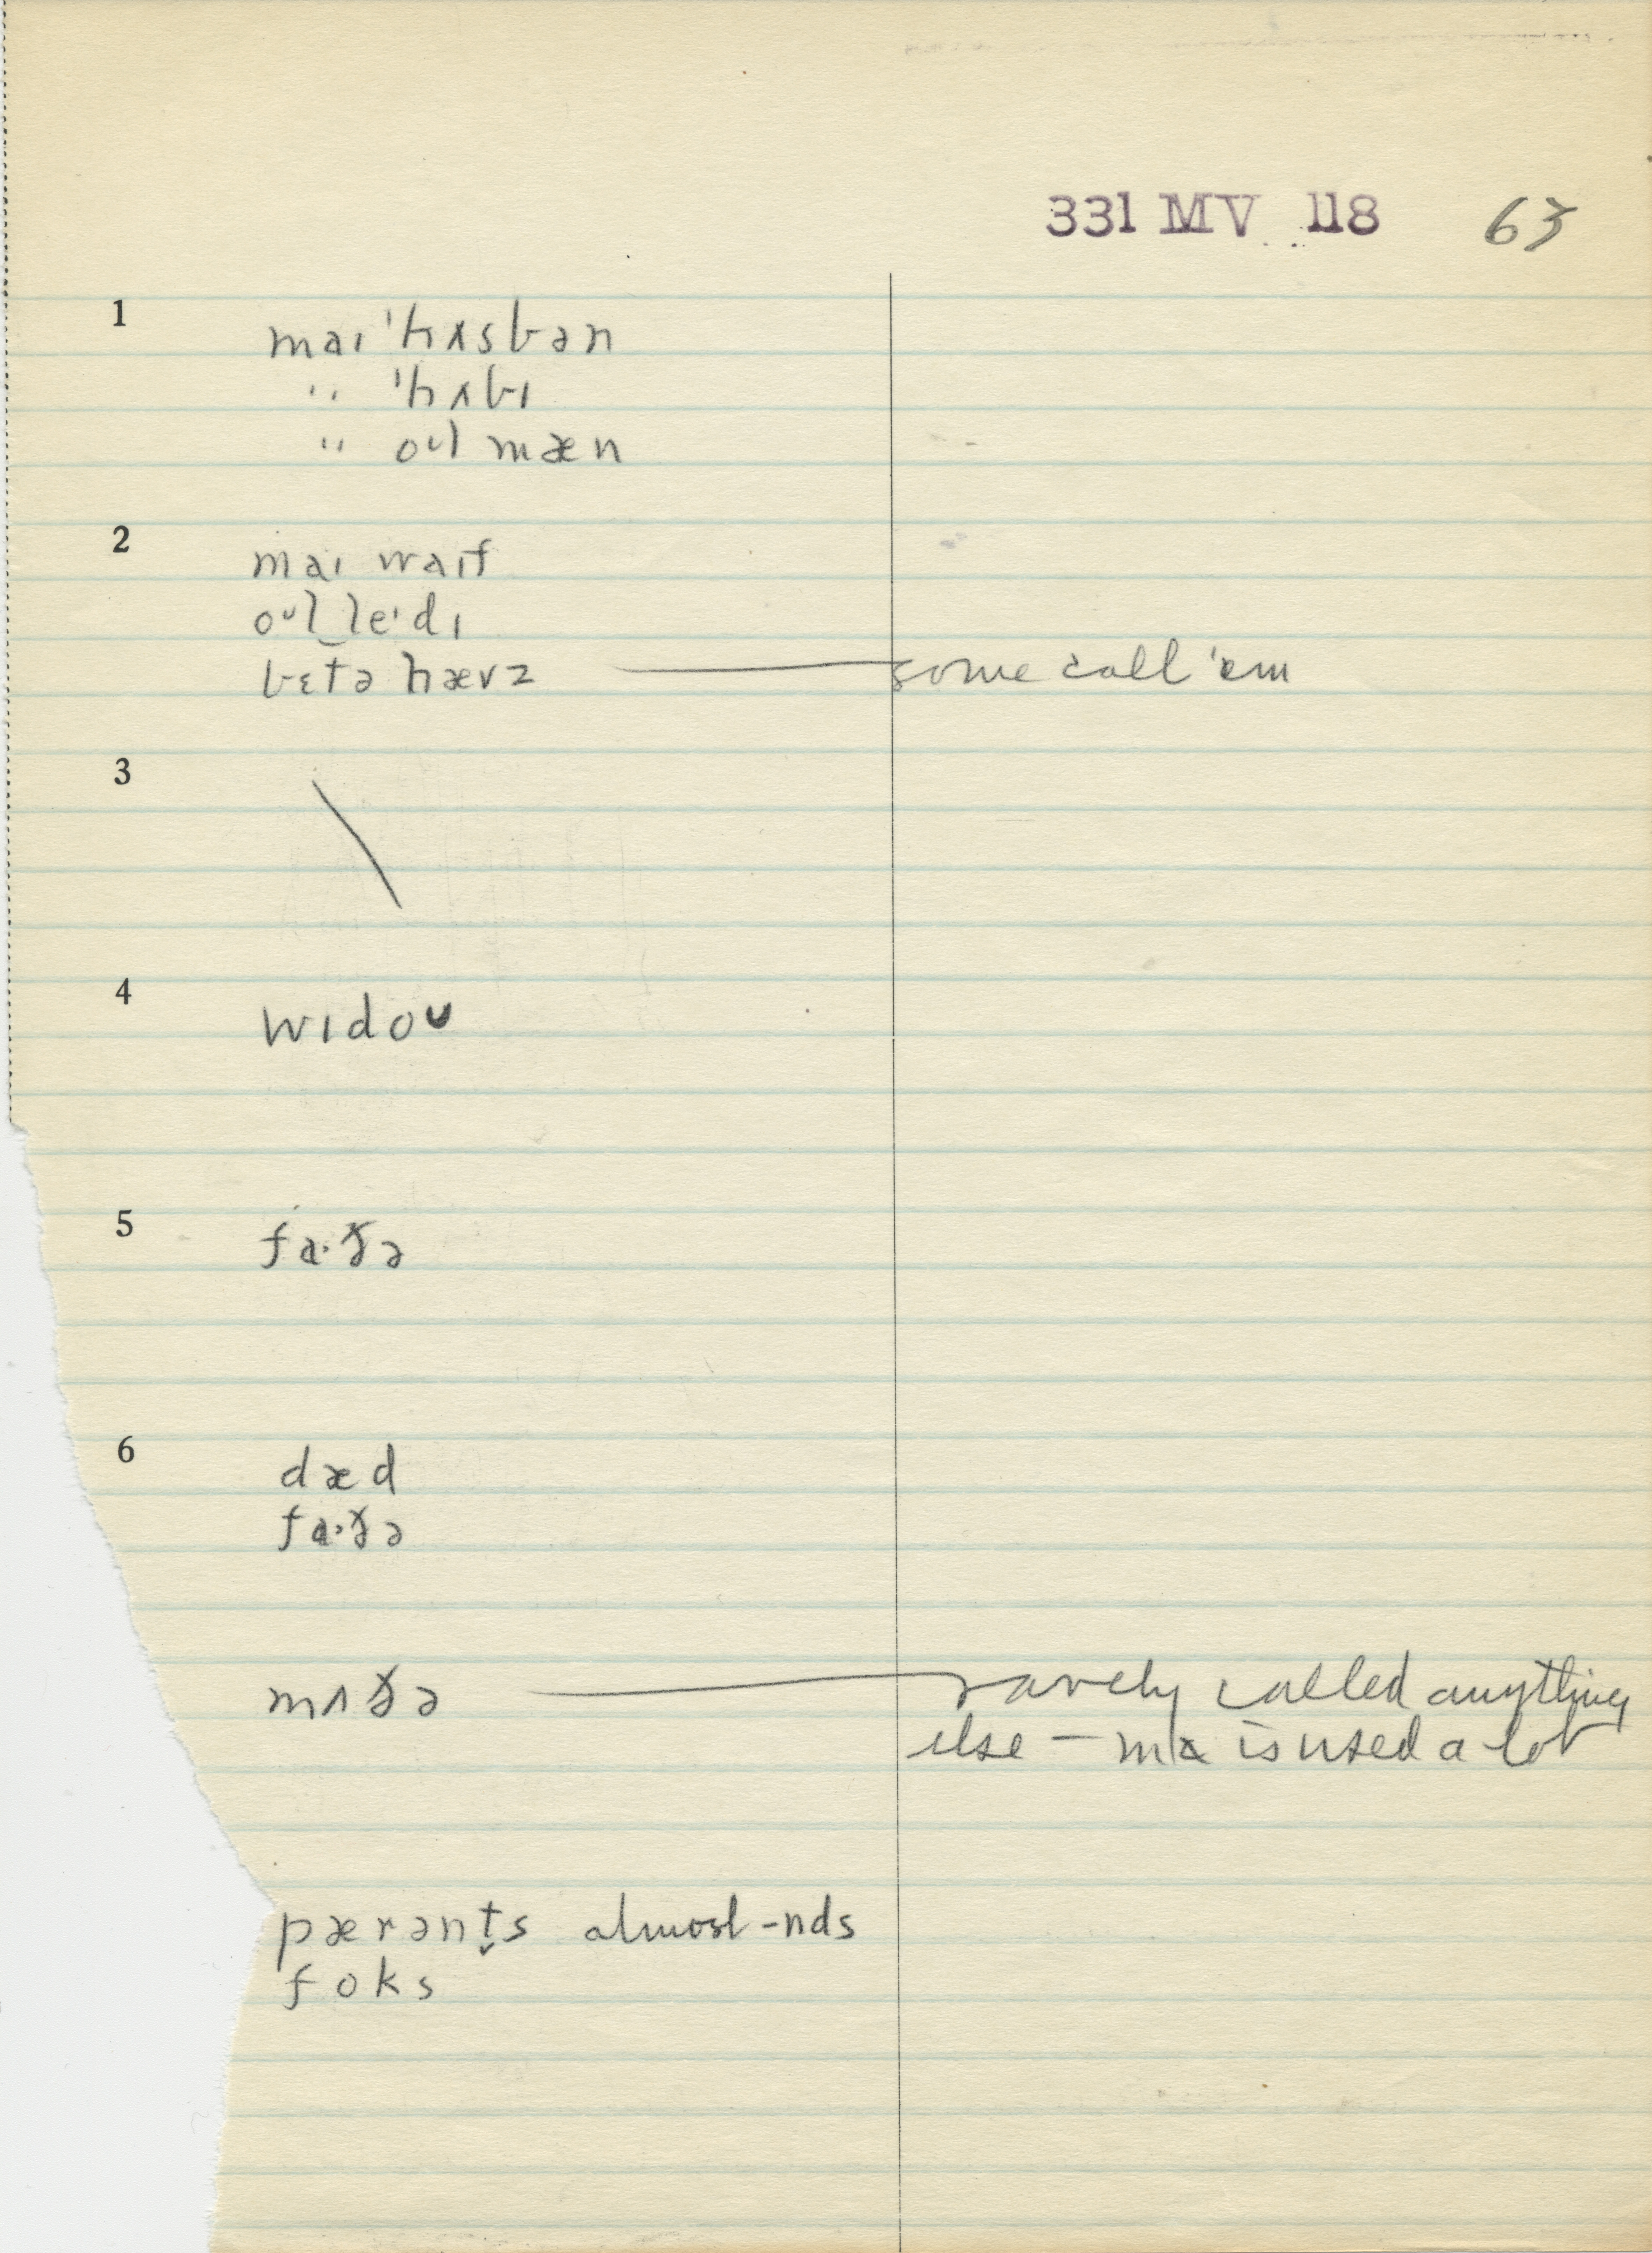 331 MV 118 63
1 maɪ 'hʌsbən
" 'hʌbɪ
" oᴜl mæn
2 maɪ waɪf
oᴜl‿leɪdɪ
bɛtə hævz — some call 'em
3 \
4 wɪdoᴜ
5 fa·ðə
6 dæd
fa·ðə
mʌðə — rarely called anything
else — ma is used a lot
pærənt̬s almost -nds
foks